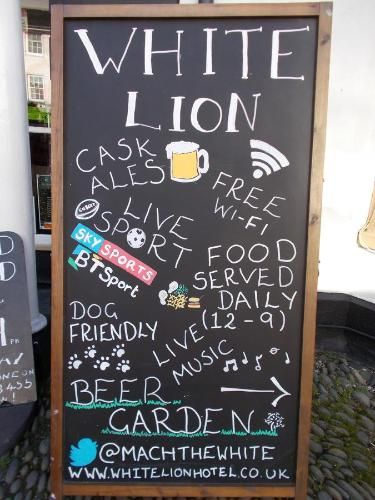 WHITE
LION
CASK
ALES
FREE
WI-FI
LIVE
SPORT
SKY SPORTS
BT Sport
FOOD
SERVED
DAILY
(12-9)
DOG
FRIENDLY
LIVE
MUSIC
BEER
GARDEN
@MACHTHEWHITE
WWW.WHITELIONHOTEL.CO.UK